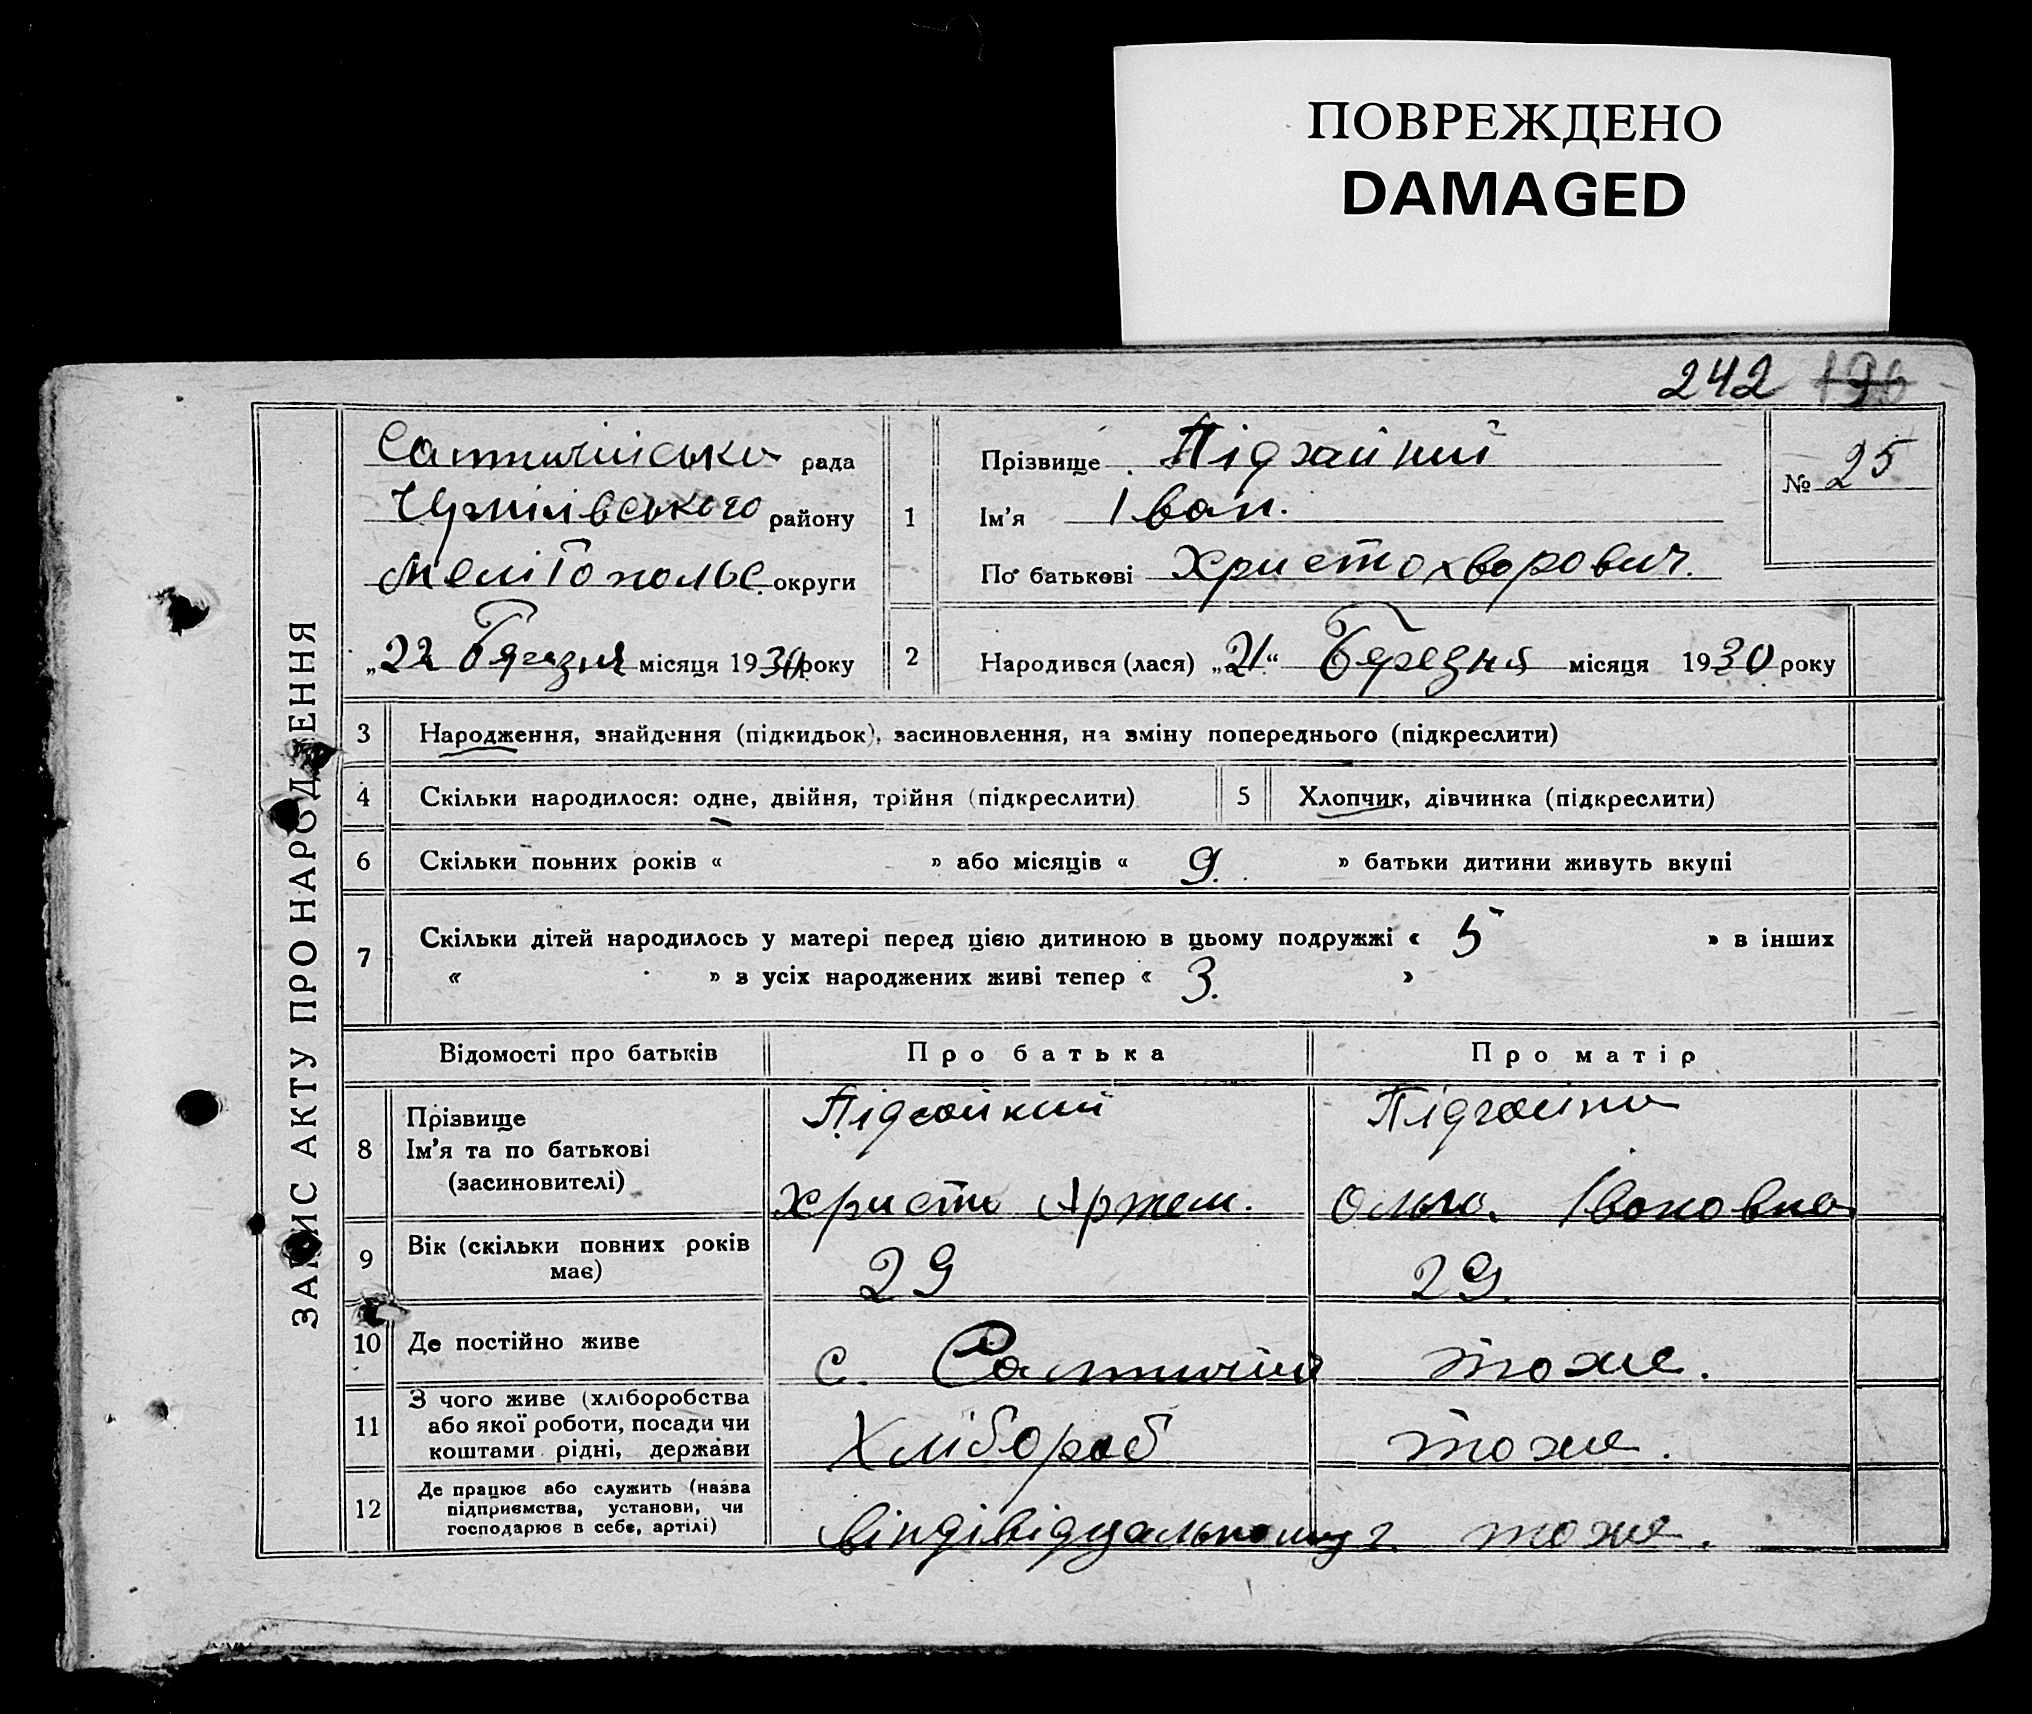 ПОВРЕЖДЕНО
DAMAGED
242 196
ЗАПИС АКТУ ПРО НАРОДЖЕННЯ
Салтичійська рада
району
Мелітопольс. округи
„22 Березня місяця 1930 року
1
Прізвище Підгайний
Ім'я Іван.
По батькові Христохворович.
№ 25
2
Народився (лася) „21“ Березня місяця 1930 року
3 Народження, знайдення (підкидьок), засиновлення, на зміну попереднього (підкреслити)
4 Скільки народилося: одне, двійня, трійня (підкреслити) 5 Хлопчик, дівчинка (підкреслити)
6 Скільки повних років « » або місяців « 9. » батьки дитини живуть вкупі
7 Скільки дітей народилось у матері перед цією дитиною в цьому подружжі « 5 » в інших
« » з усіх народжених живі тепер « 3. »
Відомості про батьків Про батька Про матір
8 Прізвище
Ім'я та по батькові
(засиновителі)
Підгайний
Христ Артем.
Підгайна
Ольга Івановна
9 Вік (скільки повних років
має)
29 29.
10 Де постійно живе с. Салтичія тоже.
11 З чого живе (хліборобства
або якої роботи, посади чи
коштами рідні, держави
Хлібороб тоже.
12 Де працює або служить (назва
підприємства, установи, чи
господарює в себе, артілі)
тоже.